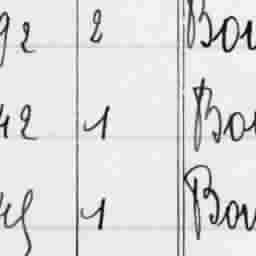 92 2 Bou
42 1 Bou
45 1 Bou